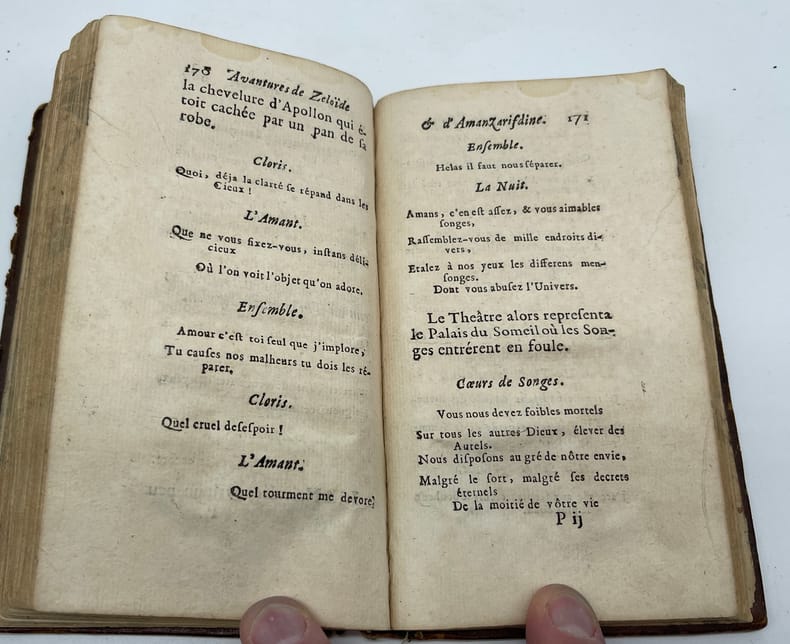 178 Avantures de Zeloïde
la chevelure d'Apollon qui é-
toit cachée par un pan de ſa
robe.
Cloris.
Quoi, déja la clarté ſe répand dans les
Cieux !
L'Amant.
Que ne vous fixez-vous, inſtans déli-
cieux
Où l'on voit l'objet qu'on adore.
Enſemble.
Amour c'eſt toi ſeul que j'implore,
Tu cauſes nos malheurs tu dois les ré-
parer.
Cloris.
Quel cruel deſeſpoir !
L'Amant.
Quel tourment me devore!
& d'Amanzarifdine. 171
Enſemble.
Helas il faut nous ſéparer.
La Nuit.
Amans, c'en eſt aſſez, & vous aimables
ſonges,
Raſſemblez-vous de mille endroits di-
vers,
Etalez à nos yeux les differens men-
ſonges.
Dont vous abuſez l'Univers.
Le Theâtre alors repreſenta
le Palais du Someil où les Son-
ges entrérent en foule.
Cœurs de Songes.
Vous nous devez foibles mortels
Sur tous les autres Dieux, élever des
Autels.
Nous diſpoſons au gré de nôtre envie,
Malgré le ſort, malgré ſes decrets
éternels
De la moitié de vôtre vie
P ij